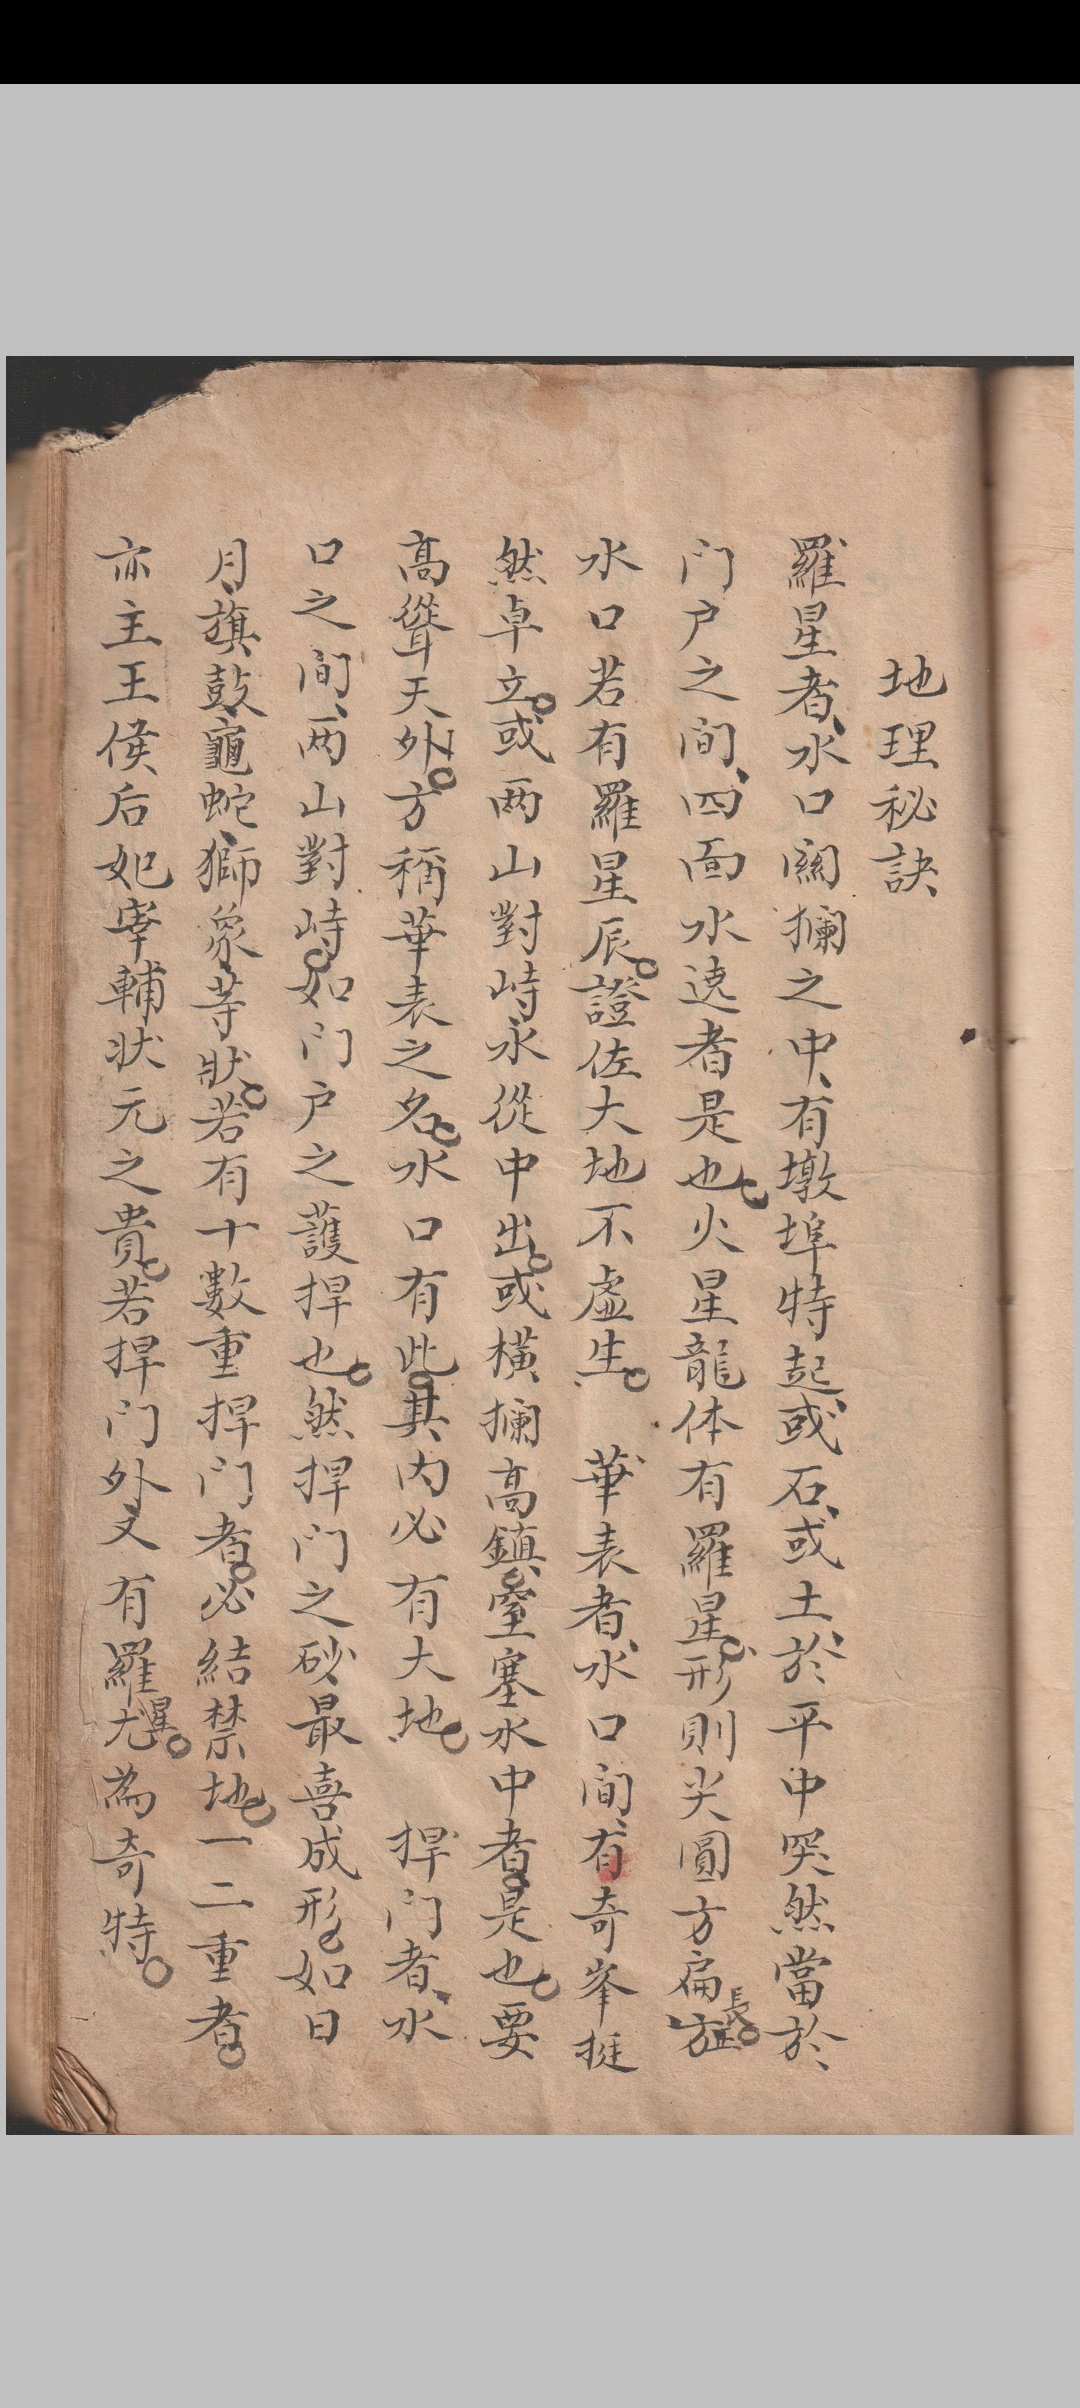 地理秘訣
羅星者、水口関攔之中、有墩埠特起、或石、或土、於平中突然當於、
门户之间、四面水遶者是也。火星龍体有羅星。形則尖圓方扁長。
水口若有羅星辰。證佐大地不虛生。　華表者、水口间、有奇峯挺
然卓立。或两山對峙、水從中出。或橫攔高鎮、窒塞水中者。是也。要
高聳天外。方稱華表之名。水口有此。其内必有大地。　捍门者、水
口之间、两山對峙。如门户之護捍也。然捍门之砂最喜成形。如日
月、旗鼓、龜蛇、獅象等狀。若有十數重捍门者。必結禁地。一二重者。
亦主王侯后妃宰輔状元之貴。若捍门外又有羅星。尤為奇特。